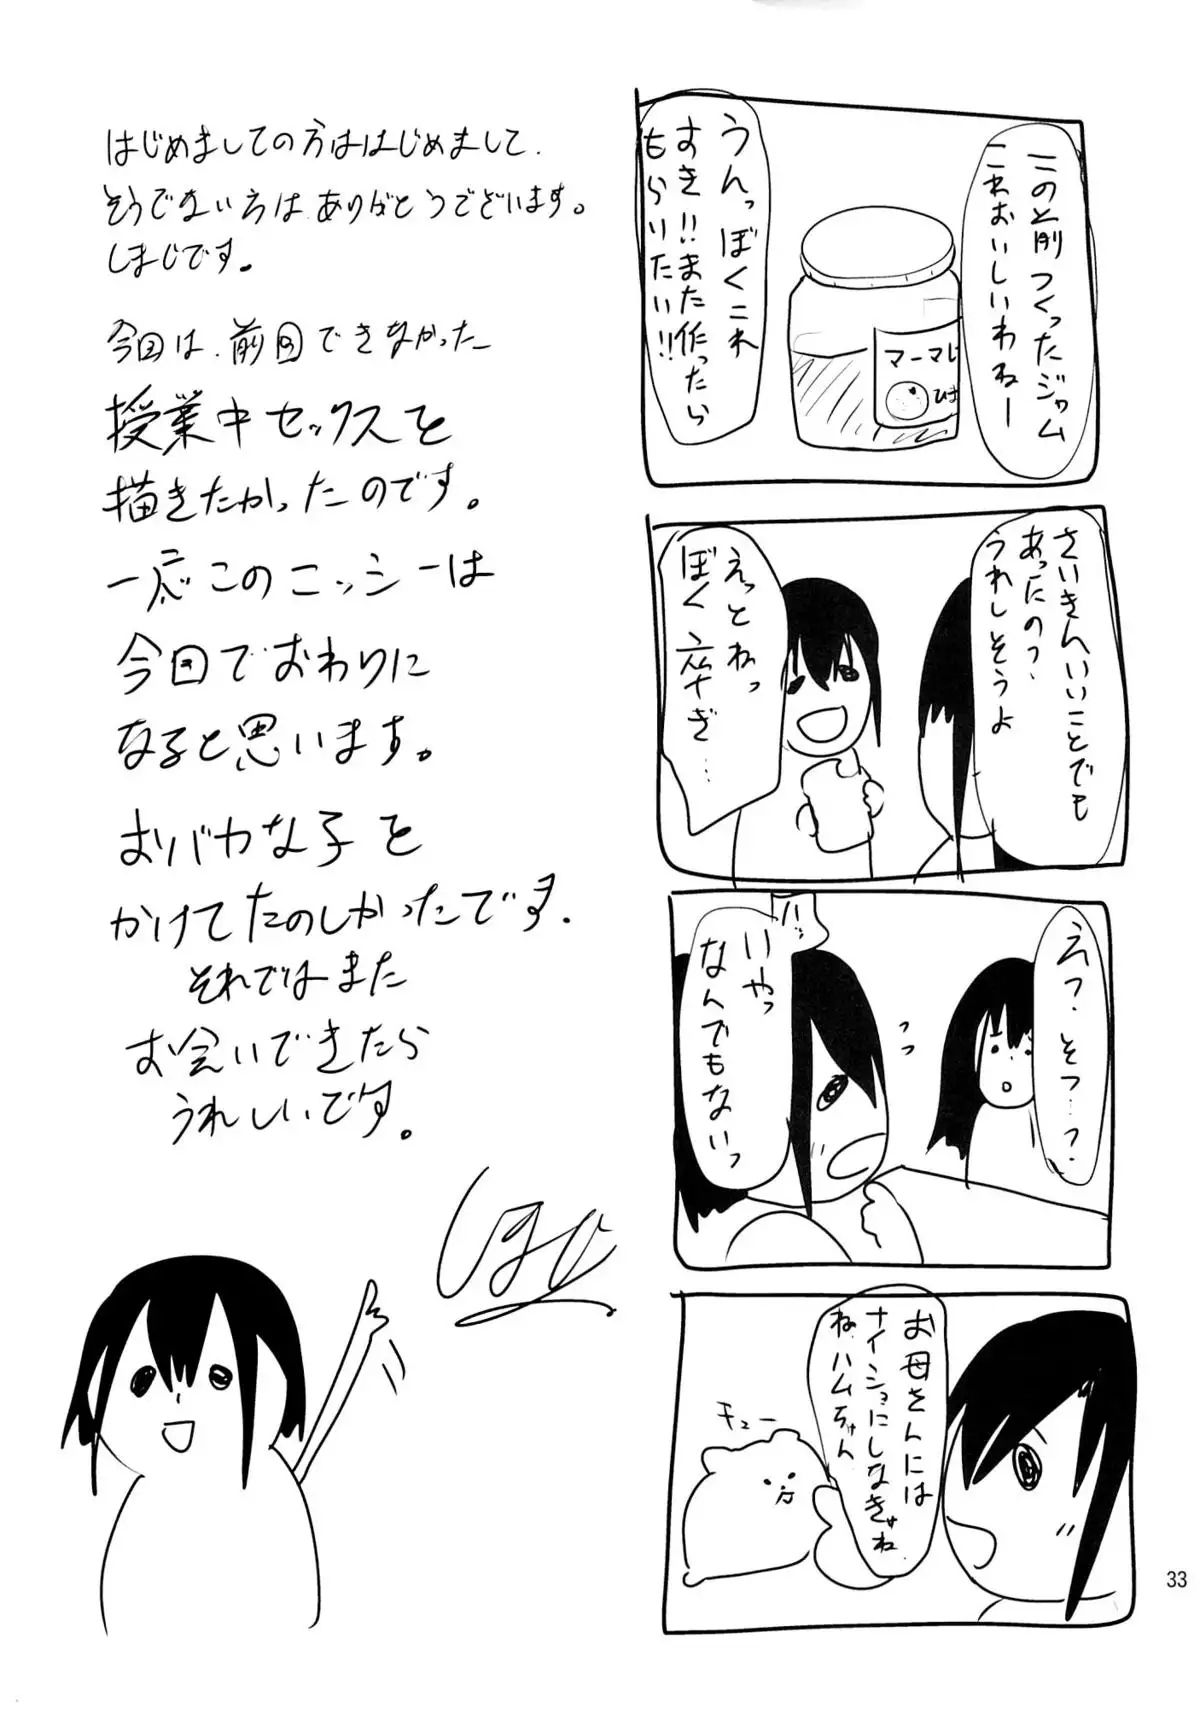 この前つくったジャム
これおいしいわねー
うんっぼくこれ
すき!!また作ったら
もらいたい!!
マーマレ
さいきんいいことでも
あったの?
うれしそうよ
えっとねっ
ぼく卒ぎ…
えっ、そつ…?
ハッ
いやっ
なんでもないっ
お母さんには
ナイショにしなきゃね
ね、ハムちゃん
チュー
はじめましての方ははじめまして、
そうでない方はありがとうございます。
しまじです。
今回は、前回できなかった
授業中セックスを
描きたかったのです。
一応このニッシーは
今回でおわりに
なると思います。
おバカな子を
かけてたのしかったです.
それではまた
お会いできたら
うれしいです。
しまじ
33